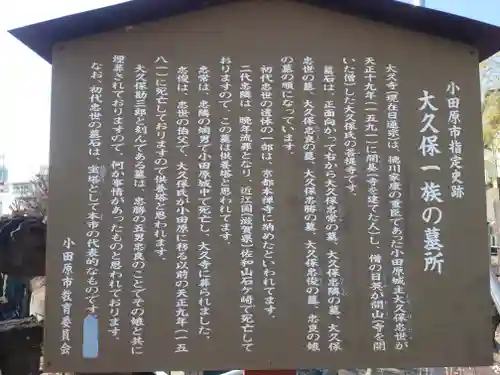 小田原市指定史跡
大久保一族の墓所
大久寺(現在日蓮宗)は、徳川家康の重臣であった小田原城主大久保忠世が
天正十九年(一五九一)に開基(寺を建てた人)し、僧の日英が開山(寺を開
いた僧)した大久保氏の菩提寺です。
墓石は、正面向かって右から大久保忠常の墓、大久保忠隣の墓、大久保
忠世の墓、大久保忠良の墓、大久保忠勝の墓、大久保忠俊の墓、忠良の娘
の墓の順になっています。
初代忠世の遺体の一部は、京都本禅寺に納めたといわれてます。
二代忠隣は、晩年流罪となり、近江国(滋賀県)佐和山石ケ崎で死亡して
おりますので、この墓は供養塔と思われます。
忠常は、忠隣の嫡男で小田原城中で死亡し、大久寺に葬られました。
忠俊は、忠世の伯父で、大久保氏が小田原に移る以前の天正九年(一五
八一)に死亡しておりますので供養塔と思われます。
大久保勘三郎と刻んである墓は、忠勝の五男忠良のことでその娘と共に
埋葬されておりますので、何か事情があったものと思われております。
なお、初代忠世の墓石は、宝塔として本市の代表的なものです
小田原市教育委員会